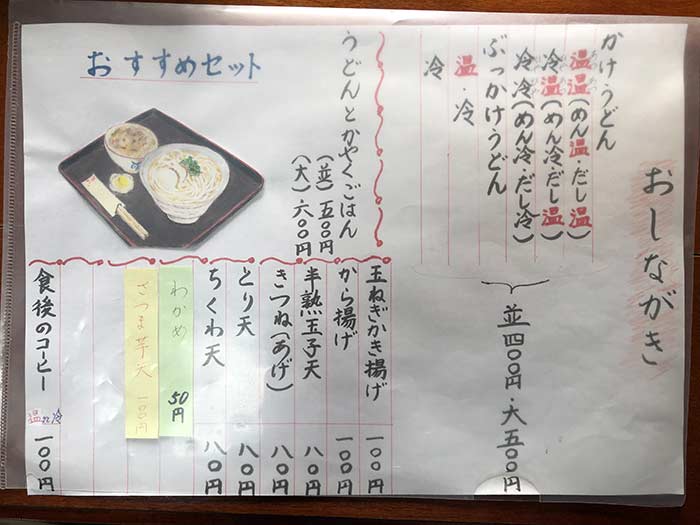 おしながき
かけうどん
温温(めん温・だし温)
冷温(めん冷・だし温)
冷冷(めん冷・だし冷)
ぶっかけうどん
温・冷
冷
並四〇〇円・大五〇〇円
おすすめセット
うどんとかやくごはん
(並)五〇〇円
(大)六〇〇円
玉ねぎかき揚げ 一〇〇円
から揚げ 一〇〇円
半熟玉子天 八〇円
きつね(あげ) 八〇円
とり天 八〇円
ちくわ天 八〇円
わかめ 50円
さつま芋天 一〇〇円
食後のコーヒー 温or冷 一〇〇円